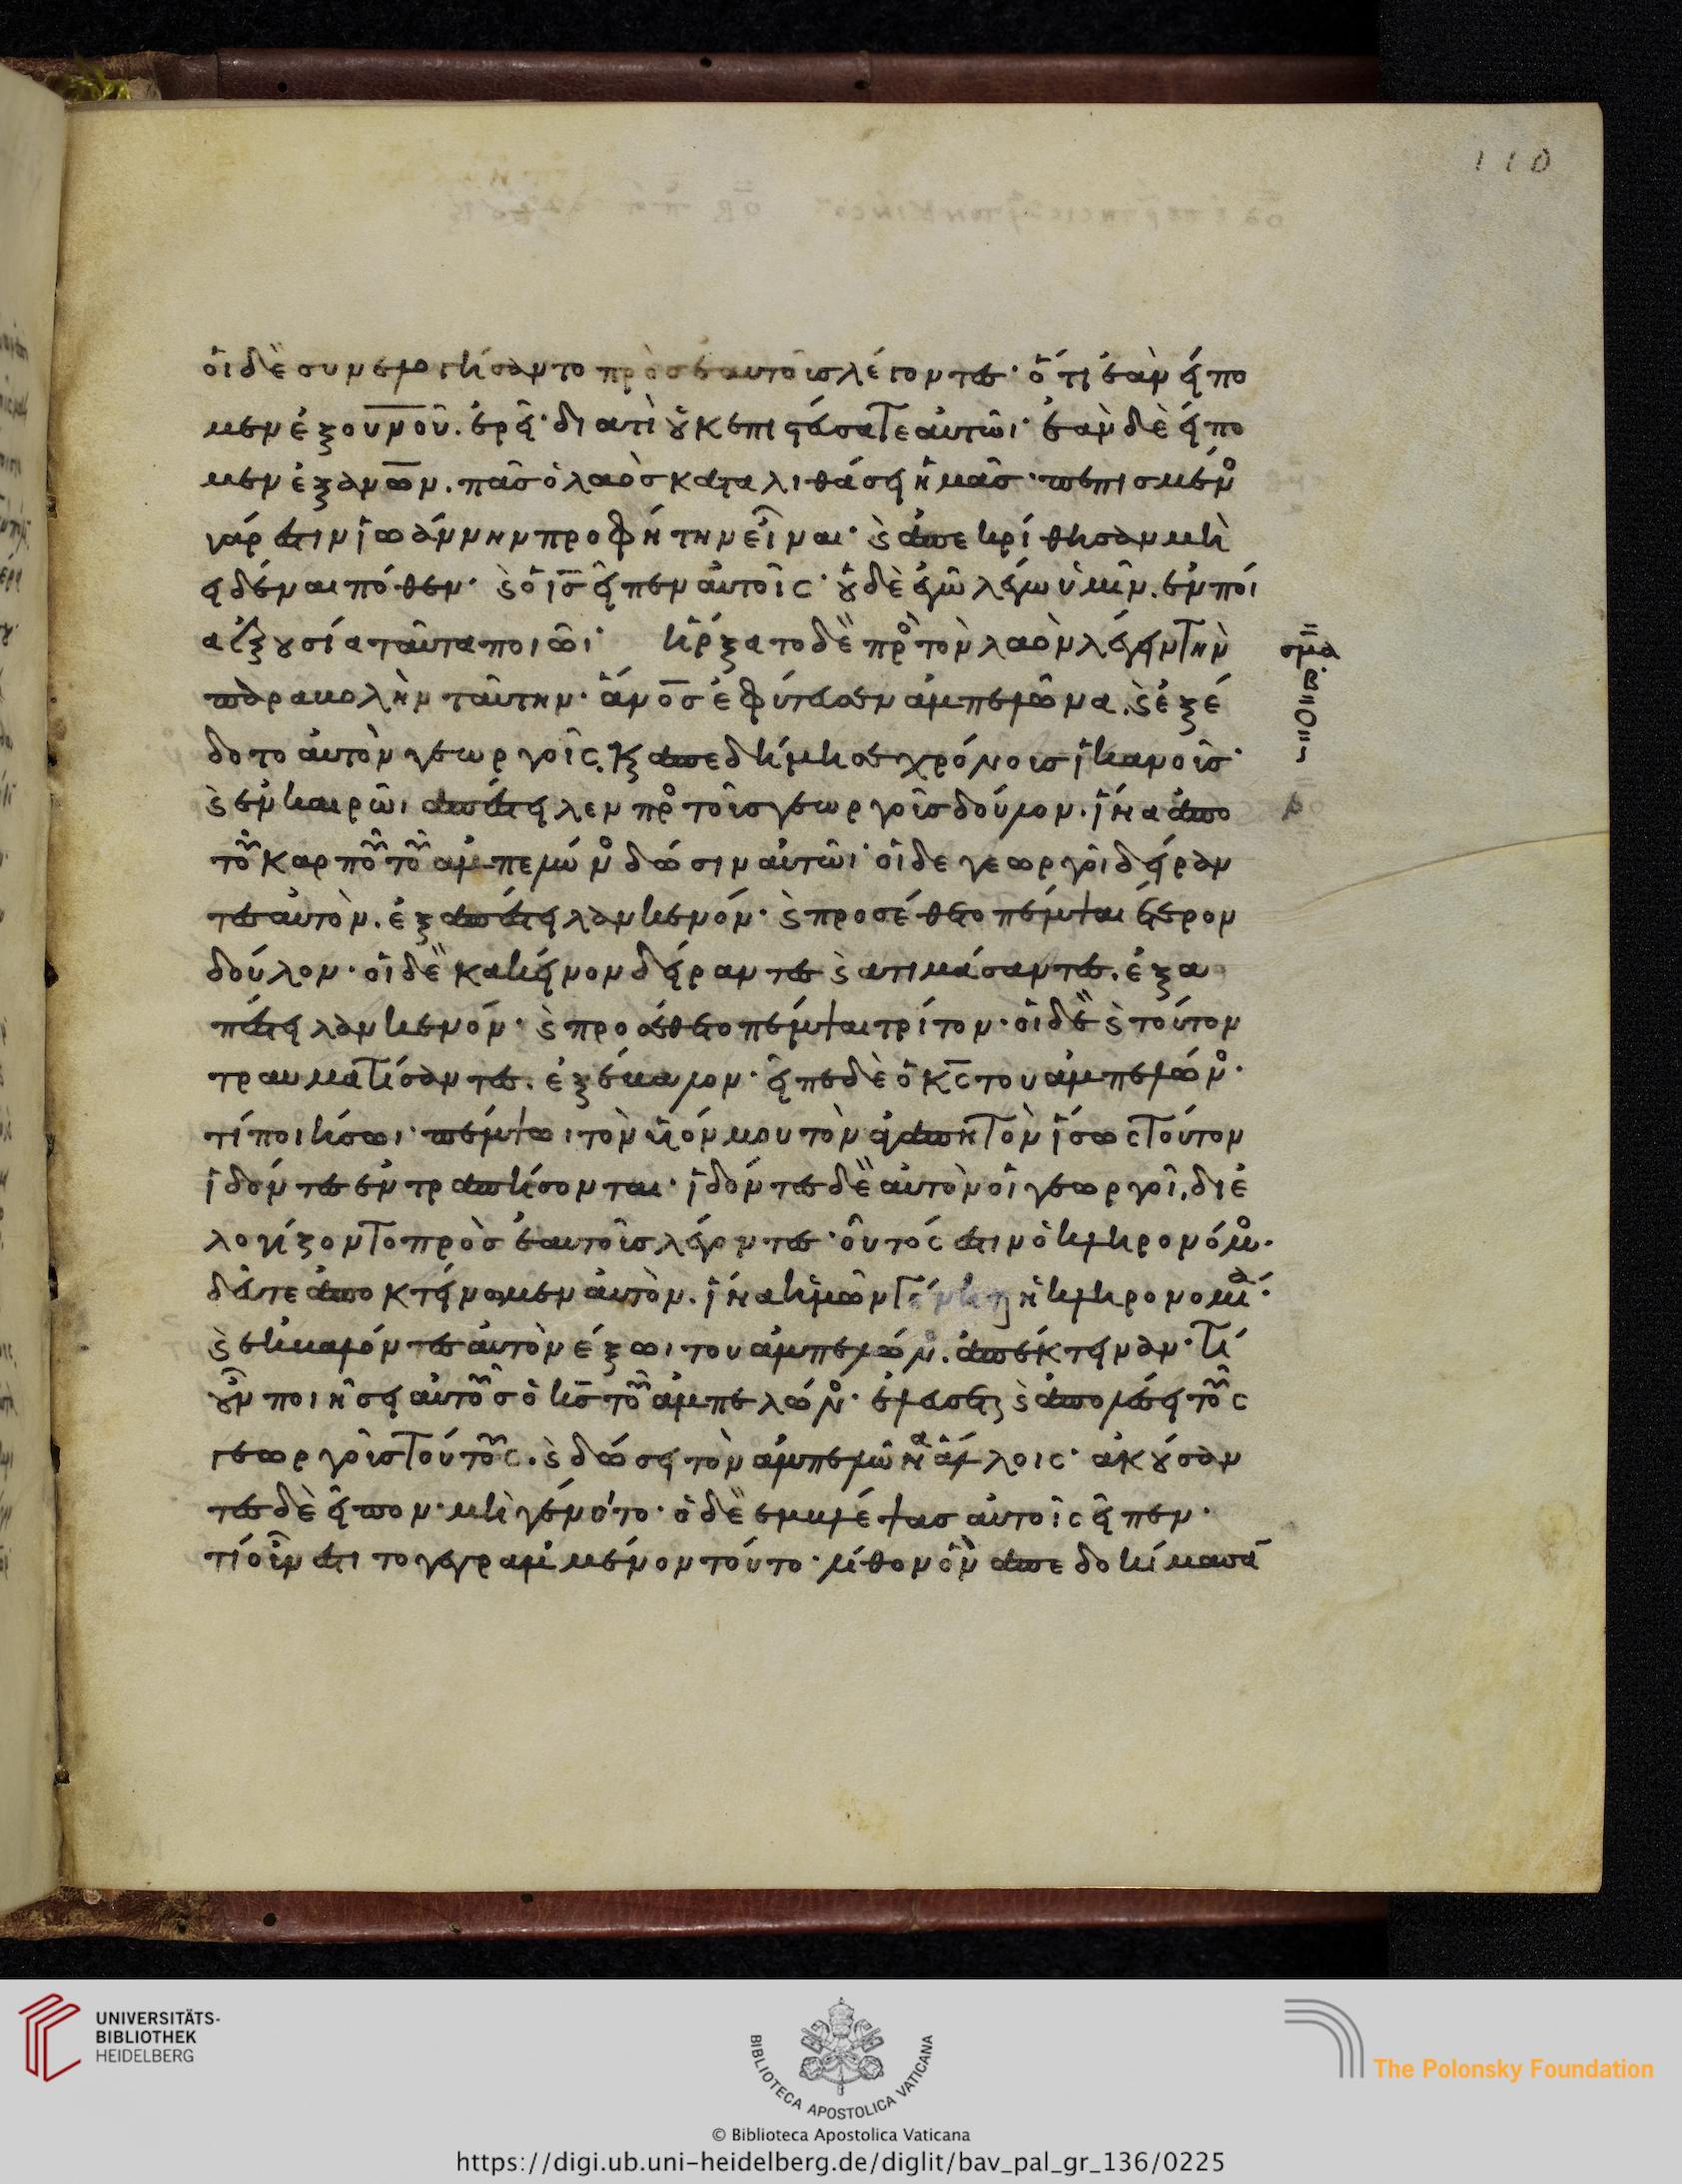 110
οἱ δὲ συνελογίσαντο πρὸς ἑαυτοὺς λέγοντες· ὅτι ἐὰν εἴπο
μεν ἐξ οὐνοῦ. ἐρεῖ· διατί οὐκ επιστεύσατε αὐτῶι· ἐὰν δὲ εἴπο
μεν ἐξ ανων. πᾶς ὁ λαὸς καταλιθάσει ἡμᾶς· πεπισμένος
γάρ ἐστιν ἰωάννην προφήτην εἶναι· καὶ ἀπεκρίθησαν μὴ
ειδέναι πόθεν· καὶ ὁ ις εἶπεν αὐτοῖς· οὐδὲ ἐγὼ λέγω ὑμῖν. ἐν ποί
α ἐξουσία ταῦτα ποιῶι· ἤρξατο δὲ πρὸς τὸν λαὸν λέγειν τὴν
παραβολὴν ταύτην· ἄνος ἐφύτευσεν ἀμπελῶνα. καὶ ἐξέ
δοτο αὐτὸν γεωργοῖς. καὶ ἀπεδήμησε χρόνους ἱκανοὺς·
καὶ ἐν καιρῶι ἀπέστειλεν πρὸς τοὺς γεωργοὺς δοῦλον. ἵνα ἀπὸ
τοῦ καρποῦ τοῦ ἀμπελῶνος δώσιν αὐτῶι· οἱ δε γεωργοὶ δείραν
τες αὐτὸν. ἐξαπέστειλαν κενόν· καὶ προσέθετο πέμψαι ἕτερον
δούλον· οἱ δὲ κακείνον δείραντες καὶ ατιμάσαντες. ἐξα
πέστειλαν κενόν· καὶ προσέθετο πέμψαι τρίτον· οἱ δὲ καὶ τούτον
τραυματίσαντες. ἐξέβαλον· εἶπε δὲ ὁ κς του ἀμπελῶνος·
τί ποιήσωι· πέμψωι τὸν υἱόν μου τὸν ἀγαπητὸν ἴσως τούτον
ἰδόντες ἐντραπήσονται· ἰδόντες δὲ αὐτὸν οἱ γεωργοὶ. διε
λογίζοντο πρὸς ἑαυτοὺς λέγοντες· οὗτός ἐστιν ὁ κληρονόμος.
δεύτε ἀποκτείνωμεν αὐτὸν. ἵνα ἡμῶν γένηται ἡ κληρονομία·
καὶ ἐκβαλόντες αὐτὸν ἔξωι του ἀμπελῶνος. ἀπέκτειναν· τί
οὖν ποιήσει αὐτοὺς ὁ κς τοῦ ἀμπελῶνος· ἐλεύσεται καὶ ἀπολέσει τοὺς
γεωργοὺς τούτους. καὶ δώσει τὸν ἀμπελῶνα ἄλλοις· ἀκούσαν
τες δὲ εἶπον· μὴ γένοιτο· ὁ δὲ ἐμβλέψας αὐτοῖς εἶπεν·
τί οὖν ἐστι το γεγραμμένον τούτο· λίθον ὃν ἀπεδοκίμασαν
σμα
β
UNIVERSITÄTS-
BIBLIOTHEK
HEIDELBERG
BIBLIOTECA APOSTOLICA VATICANA
The Polonsky Foundation
© Biblioteca Apostolica Vaticana
https://digi.ub.uni-heidelberg.de/diglit/bav_pal_gr_136/0225